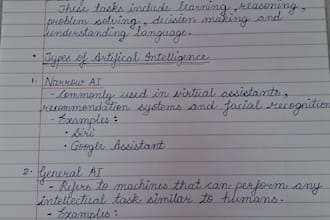 These tasks include learning, reasoning,
problem solving, decision making and
understanding language.
• Types of Artifical Intelligence
1. Narrow AI
- Commonly used in virtual assistants,
recommendation systems and facial recognition
- Examples :
• Siri
• Google Assistant
2. General AI
- Refers to machines that can perform any
intellectual task similar to humans.
- Examples :